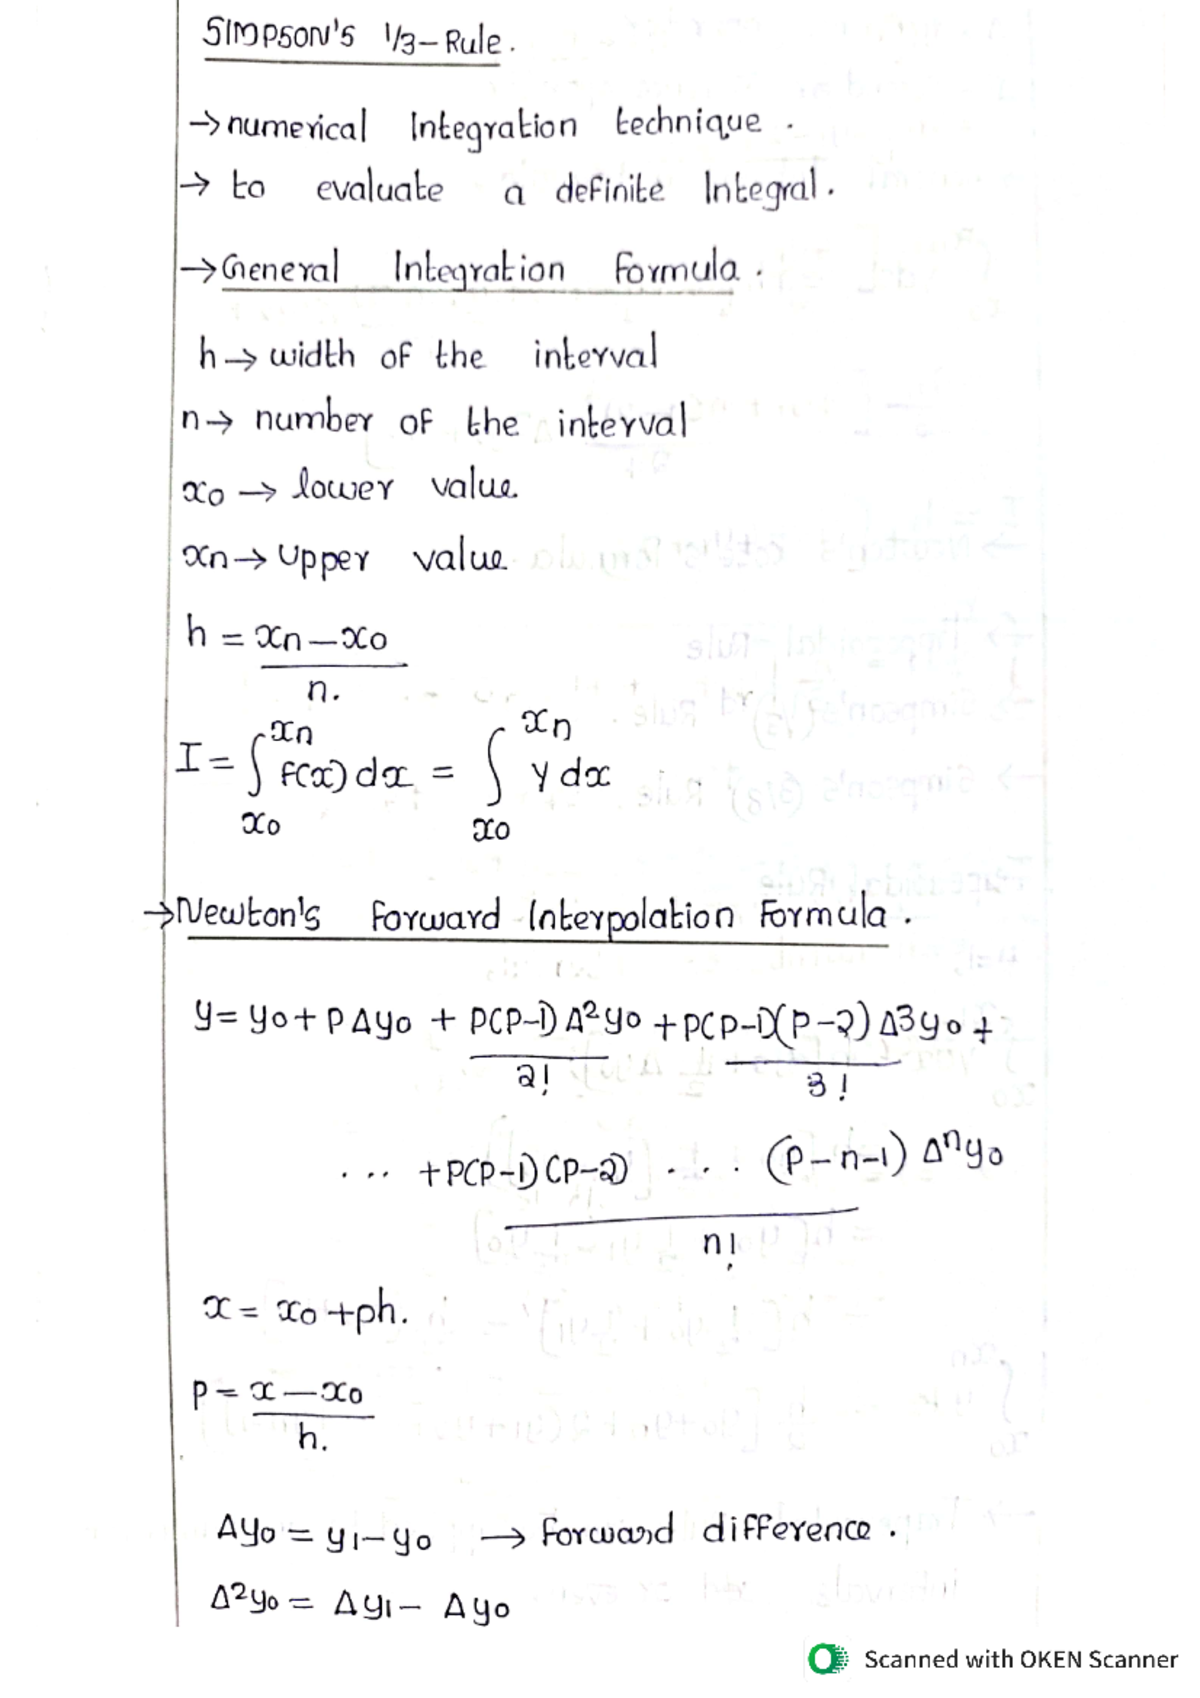 SIMPSON'S 1/3-Rule.
→ numerical Integration technique.
→ to evaluate a definite Integral.
→ General Integration Formula.
h → width of the interval
n → number of the interval
x0 → lower value.
xn → Upper value
h = xn - x0
n.
I = ∫ f(x) dx = ∫ y dx
xn xn
x0 x0
→ Newton's Forward Interpolation Formula.
y = y0 + P Δy0 + P(P-1) Δ²y0 + P(P-1)(P-2) Δ³y0 +
2! 3!
... + P(P-1)(P-2) ... (P-n-1) Δⁿy0
n!
x = x0 + ph.
P = x - x0
h.
Δy0 = y1 - y0 → Forward difference.
Δ²y0 = Δy1 - Δy0
Scanned with OKEN Scanner